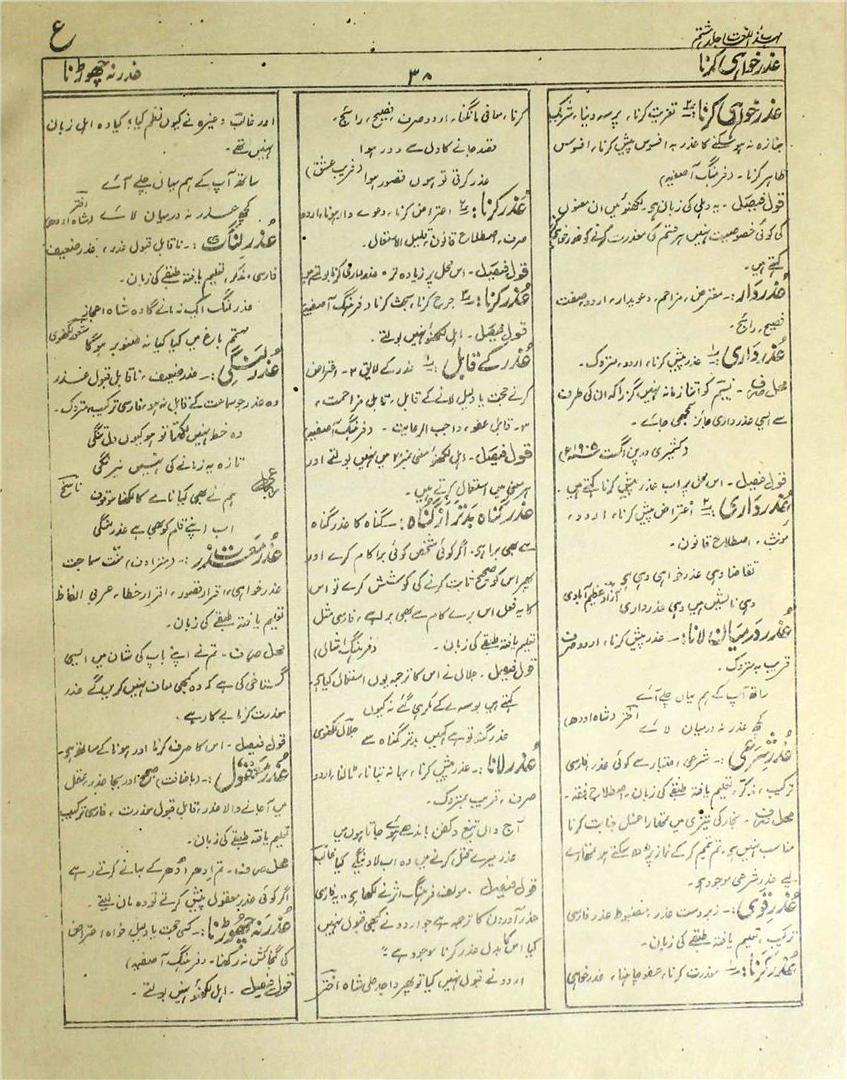 ع
مہذب اللغات جلد ہشتم
عذر خواہی کرنا
۳۸
عذر نہ چھوڑنا
عذر خواہی کرنا :۔ تعزیت کرنا، پرسہ دینا، شریک
جنازہ نہ ہو سکنے کا عذر بہ افسوس پیش کرنا، افسوس
ظاہر کرنا۔ (فرہنگ آصفیہ)
قول فیصل۔ یہ دہلی کی زبان ہے۔ لکھنؤ میں ان معنوں
کی کوئی خصوصیت نہیں ہر قسم کی معذرت کرنے کو عذر خواہی
کہتے ہیں۔
عذر دار :۔ معترض، مزاحم، دعویدار، اردو صفت
فصیح، رائج۔
عذر داری :۔ عذر پیش کرنا، اردو، متروک۔
محل صرف۔ نسیم کو اتنا زمانہ نہیں گزرا کہ ان کی طرف
سے ایسی عذر داری جائز سمجھی جائے۔
(کشمیری درپن اگست ۱۹۰۵ء)
قول فیصل۔ اس محل پر اب عذر پیش کرنا کہتے ہیں۔
عذر داری :۔ اعتراض پیش کرنا، اردو،
مونث، اصطلاح قانون۔
تقاضا وہی عذر خواہی وہی ہے
وہی نالشیں ہیں وہی عذر داری آزاد عظیم آبادی
عذر درمیان لانا :۔ عذر پیش کرنا، اردو صرف
قریب بہ متروک۔
ساتھ آپ کے ہم یہاں چلے آئے
کچھ عذر نہ درمیان لائے اختر (شاہ اودھ)
عذر شرعی :۔ شرعی اعتبار سے کوئی عذر، فارسی
ترکیب، مذکر، تعلیم یافتہ طبقے کی زبان۔ اصطلاح فقہ۔
محل صرف۔ بخار کی تیزی میں تمھارا غسل جنابت کرنا
مناسب نہیں ہے، تم تیمم کر کے نماز پڑھ سکتے ہو تمھارے
لیے عذر شرعی موجود ہے۔
عذر قوی :۔ زبردست عذر، مضبوط عذر، فارسی
ترکیب، تعلیم یافتہ طبقے کی زبان۔
عذر کرنا :۔ معذرت کرنا، عفو چاہنا، عذر خواہی
کرنا، معافی مانگنا، اردو صرف، فصیح، رائج۔
قصد جانے کا دل سے دور ہوا
عذر کرتی تو ہوں قصور ہوا (فریب عشق)
عذر کرنا :۔ اعتراض کرنا، دعوے دار ہونا، اردو
صرف، اصطلاح قانون، قلیل الاستعمال۔
قول فیصل۔ اس محل پر زیادہ تر عذر داری کرنا بولتے ہیں
عذر کرنا :۔ جرح کرنا، بحث کرنا (فرہنگ آصفیہ)
قول فیصل۔ اہل لکھنؤ نہیں بولتے۔
عذر کے قابل :۔ ۱ عذر کے لائق ۲۔ اعتراض
کرنے حجت یا دلیل لانے کے قابل، قابل مزاحمت،
۳۔ قابل عفو، واجب الرعایت۔ (فرہنگ آصفیہ)
قول فیصل۔ اہل لکھنؤ معنی نمبر ۲ میں نہیں بولتے اور
معنی میں استعمال کرتے ہیں۔
عذر گناہ بدتر از گناہ :۔ گناہ کا عذر گناہ
سے بھی برا ہے، اگر کوئی شخص کوئی برا کام کرے اور
پھر اس کو صحیح ثابت کرنے کی کوشش کرے تو اس
کا یہ فعل اس برے کام سے بھی برا ہے، فارسی مثل
تعلیم یافتہ طبقے کی زبان۔ (فرہنگ امثال)
قول فیصل۔ جلال نے اس کا ترجمہ یوں استعمال کیا ہے
کہتے ہیں بوسہ لے کے مکر ہی گئے نہ کیوں
عذر گنہ تو ہے کہیں بدتر گناہ سے جلال لکھنوی
عذر لانا :۔ عذر پیش کرنا، بہانہ بتانا، ٹالنا، اردو
صرف، قریب بمتروک۔
آج واں تیغ و کفن باندھے ہوئے جاتا ہوں میں
عذر میرے قتل کرنے میں وہ اب لاویں گے کیا غالب
قول فیصل۔ مولف فرہنگ اثر نے لکھا ہے "یہ فارسی
عذر آوردن کا ترجمہ ہے جو اردو نے کبھی قبول نہیں
کیا اس کا بدل عذر کرنا موجود ہے"
اردو نے قبول نہیں کیا تو پھر واجد علی شاہ اختر
اور غالب وغیرہ نے کیوں نظم کیا؟ کیا وہ اہل زبان
نہیں تھے۔
ساتھ آپ کے ہم یہاں چلے آئے
کچھ عذر نہ درمیان لائے اختر (شاہ اودھ)
عذر لنگ :۔ ناقابل قبول عذر، عذر ضعیف
فارسی، مذکر، تعلیم یافتہ طبقے کی زبان۔
عذر لنگ اک نہ مانے گا وہ شاہ
مہتمم باغ میں کیا کیا نہ صنوبر ہوگا
عذر لنگی :۔ عذر ضعیف، ناقابل قبول عذر
وہ عذر جو سماعت کے قابل نہ ہو، فارسی ترکیب، متروک۔
وہ خط نہیں لکھتا تو ہو کیوں دل تنگی
تازہ یہ زمانے کی نہیں نیرنگی
ہم نے بھی کیا نامے کا لکھنا موقوف ناسخ
اب اپنے قلم کو بھی ہے عذر لنگی
عذر معذرت :۔ (مترادف) منت سماجت
عذر خواہی، اقرار قصور، اقرار خطا، عربی الفاظ
تعلیم یافتہ طبقے کی زبان۔
محل صرف۔ تم نے اپنے باپ کی شان میں ایسی
گستاخی کی ہے کہ وہ کبھی معاف نہیں کریں گے عذر
معذرت کرنا بے کار ہے۔
قول فیصل۔ اس کا صرف کرنا اور ہونا کے ساتھ ہے۔
عذر معقول :۔ (باضافت) صحیح اور بجا عذر، عقل
میں آ جانے والا عذر، قابل قبول معذرت، فارسی ترکیب
تعلیم یافتہ طبقے کی زبان۔
محل صرف۔ تم ادھر اُدھر کے بہانے کرتے رہے
اگر کوئی عذر معقول پیش کرتے تو وہ مان لیتے۔
عذر نہ چھوڑنا :۔ کسی حجت یا دلیل خواہ اعتراض
کی گنجائش نہ رکھنا۔ (فرہنگ آصفیہ)
قول فیصل۔ اہل لکھنؤ نہیں بولتے۔